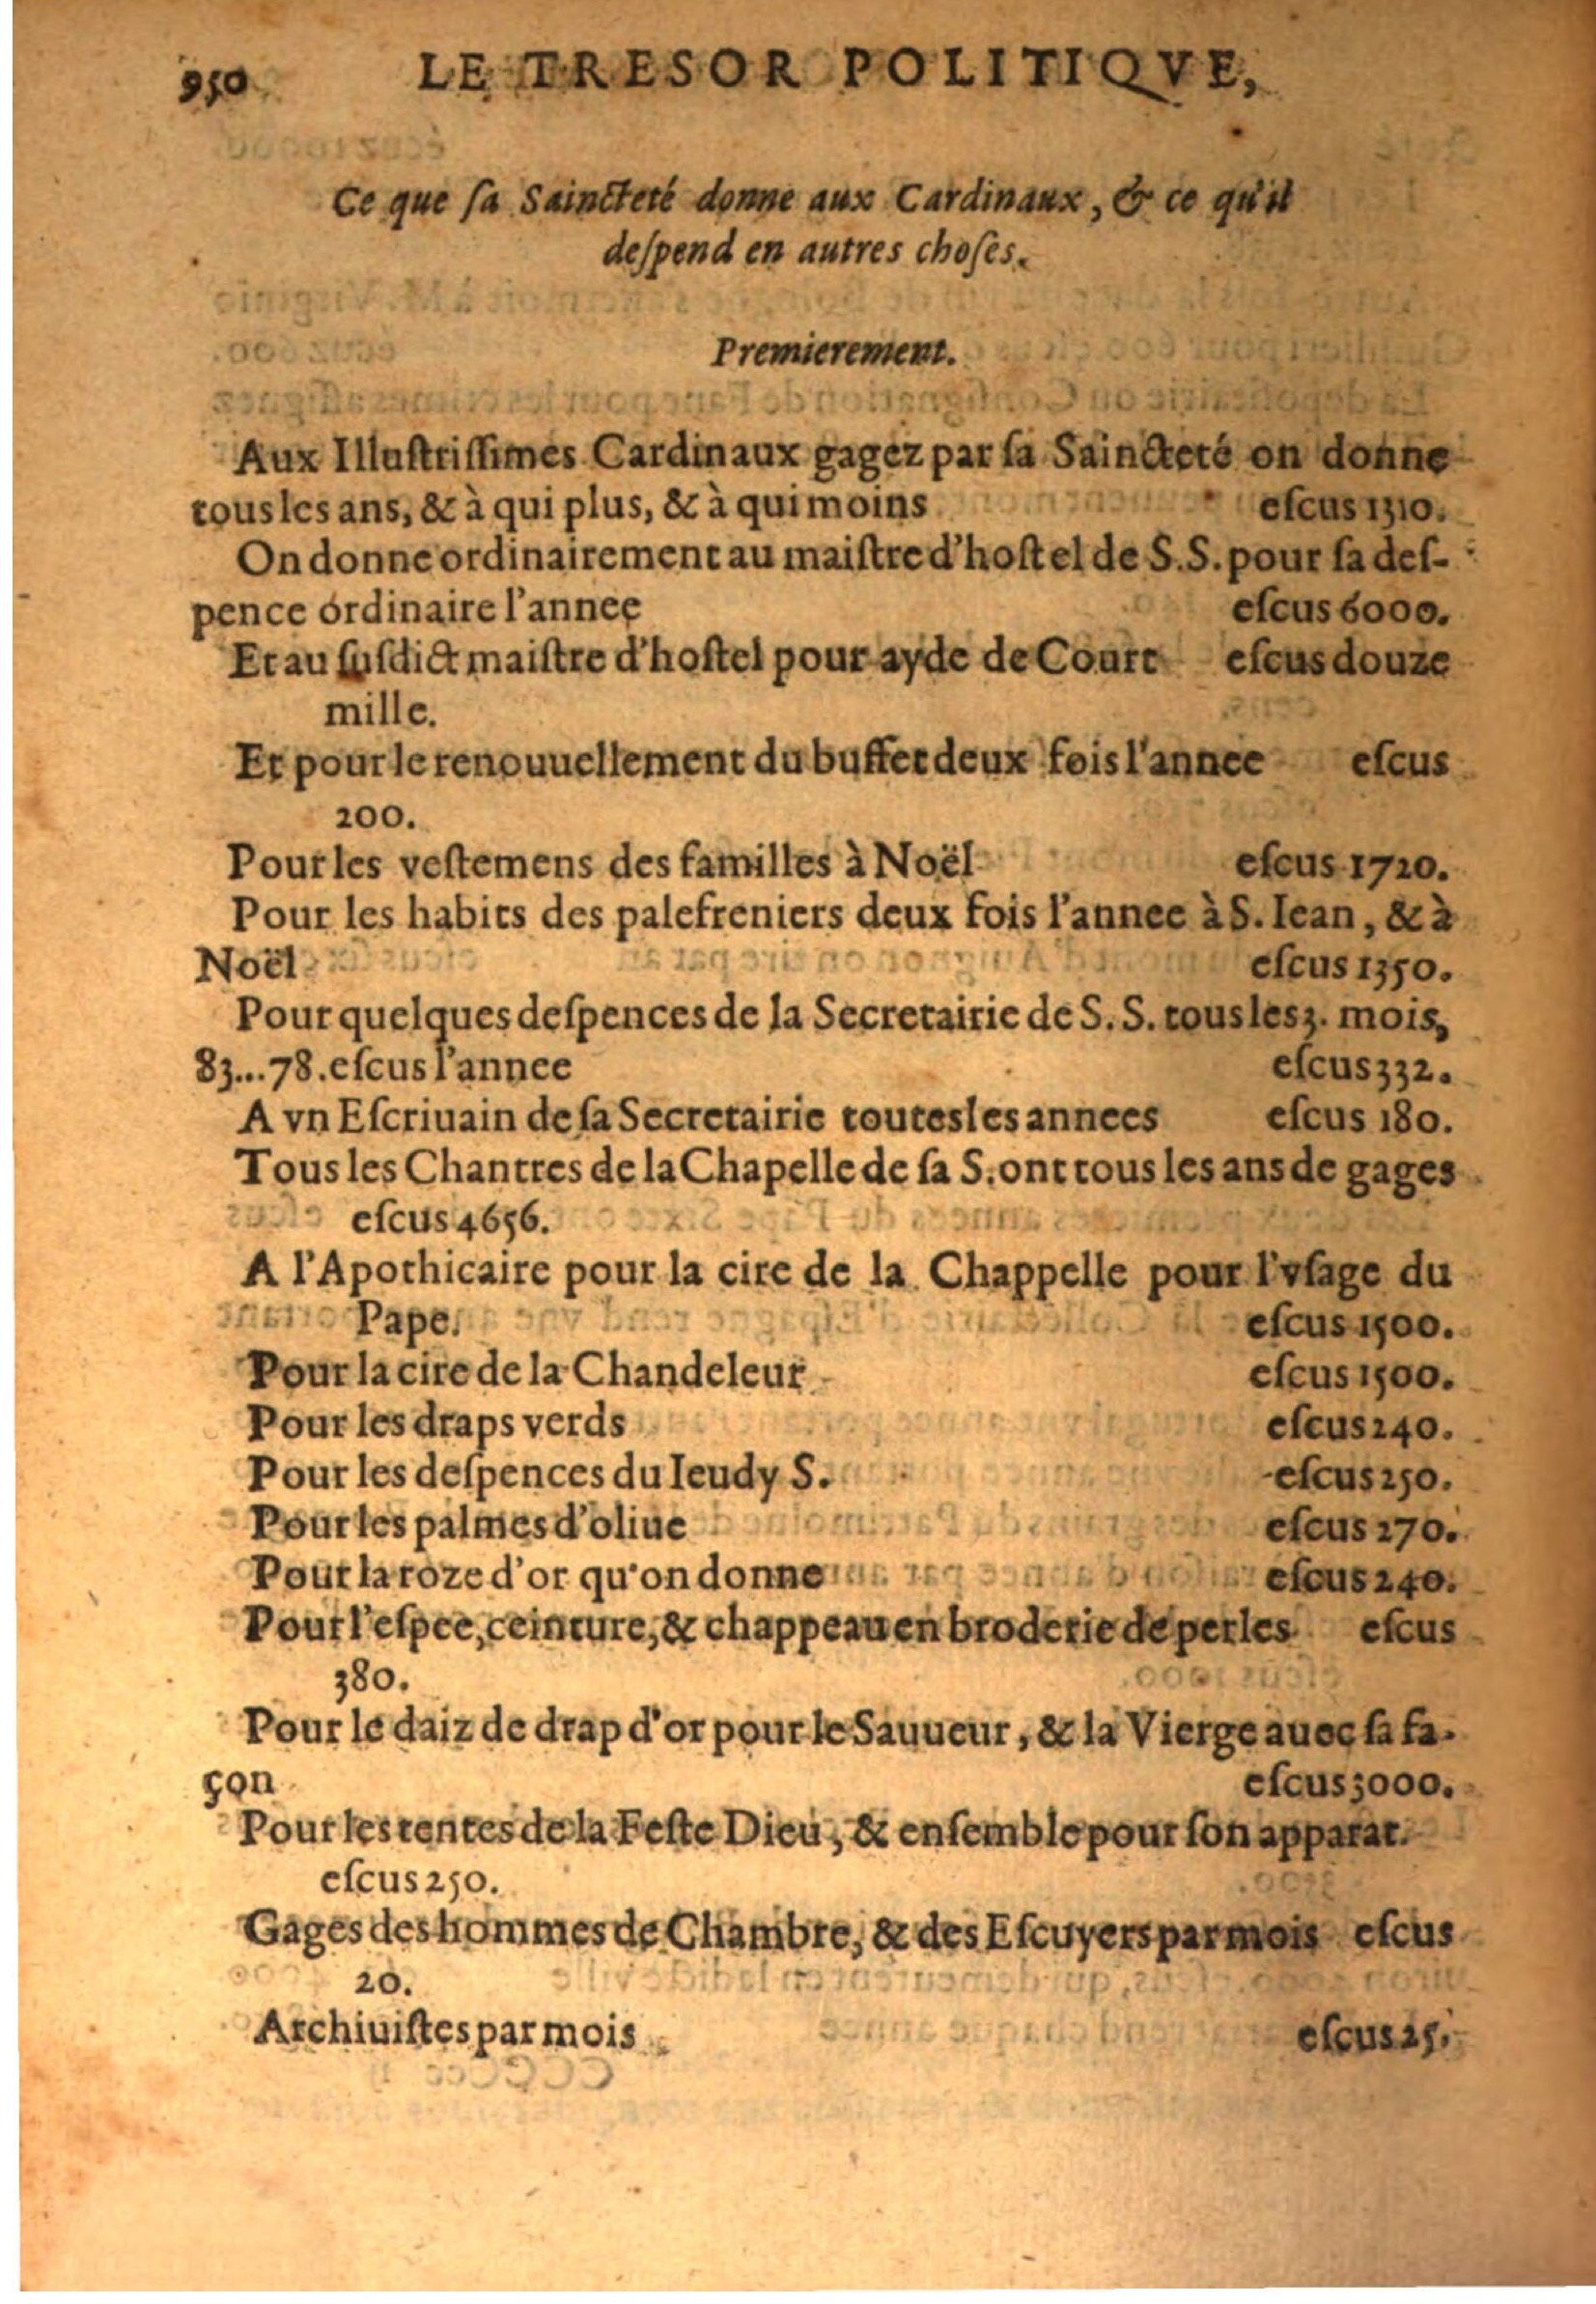 950 LE TRESOR POLITIQVE,
Ce que ſa Sainĉteté donne aux Cardinaux, & ce qu'il
deſpend en autres choſes.
Premierement.
Aux Illuſtriſſimes Cardinaux gagez par ſa Saincteté on donne
tous les ans, & à qui plus, & à qui moins eſcus 1310.
On donne ordinairement au maiſtre d'hoſtel de S.S. pour ſa deſ-
pence ordinaire l'annee eſcus 6000.
Et au ſuſdict maiſtre d'hoſtel pour ayde de Court eſcus douze
mille.
Et pour le renouuellement du buffet deux fois l'annee eſcus
200.
Pour les veſtemens des familles à Noël eſcus 1720.
Pour les habits des palefreniers deux fois l'annee à S. Iean, & à
Noël eſcus 1350.
Pour quelques deſpences de la Secretairie de S. S. tous les 3. mois,
83...78. eſcus l'annee eſcus 332.
A vn Eſcriuain de ſa Secretairie toutes les annees eſcus 180.
Tous les Chantres de la Chapelle de ſa S. ont tous les ans de gages
eſcus 4656.
A l'Apothicaire pour la cire de la Chappelle pour l'vſage du
Pape. eſcus 1500.
Pour la cire de la Chandeleur eſcus 1500.
Pour les draps verds eſcus 240.
Pour les deſpences du Ieudy S. eſcus 250.
Pour les palmes d'oliue eſcus 270.
Pour la roze d'or qu'on donne eſcus 240.
Pour l'eſpee, ceinture, & chappeau en broderie de perles eſcus
380.
Pour le daiz de drap d'or pour le Sauueur, & la Vierge auec ſa fa-
çon eſcus 3000.
Pour les tentes de la Feſte Dieu, & enſemble pour ſon apparat.
eſcus 250.
Gages des hommes de Chambre, & des Eſcuyers par mois eſcus
20.
Archiuiſtes par mois eſcus 25.